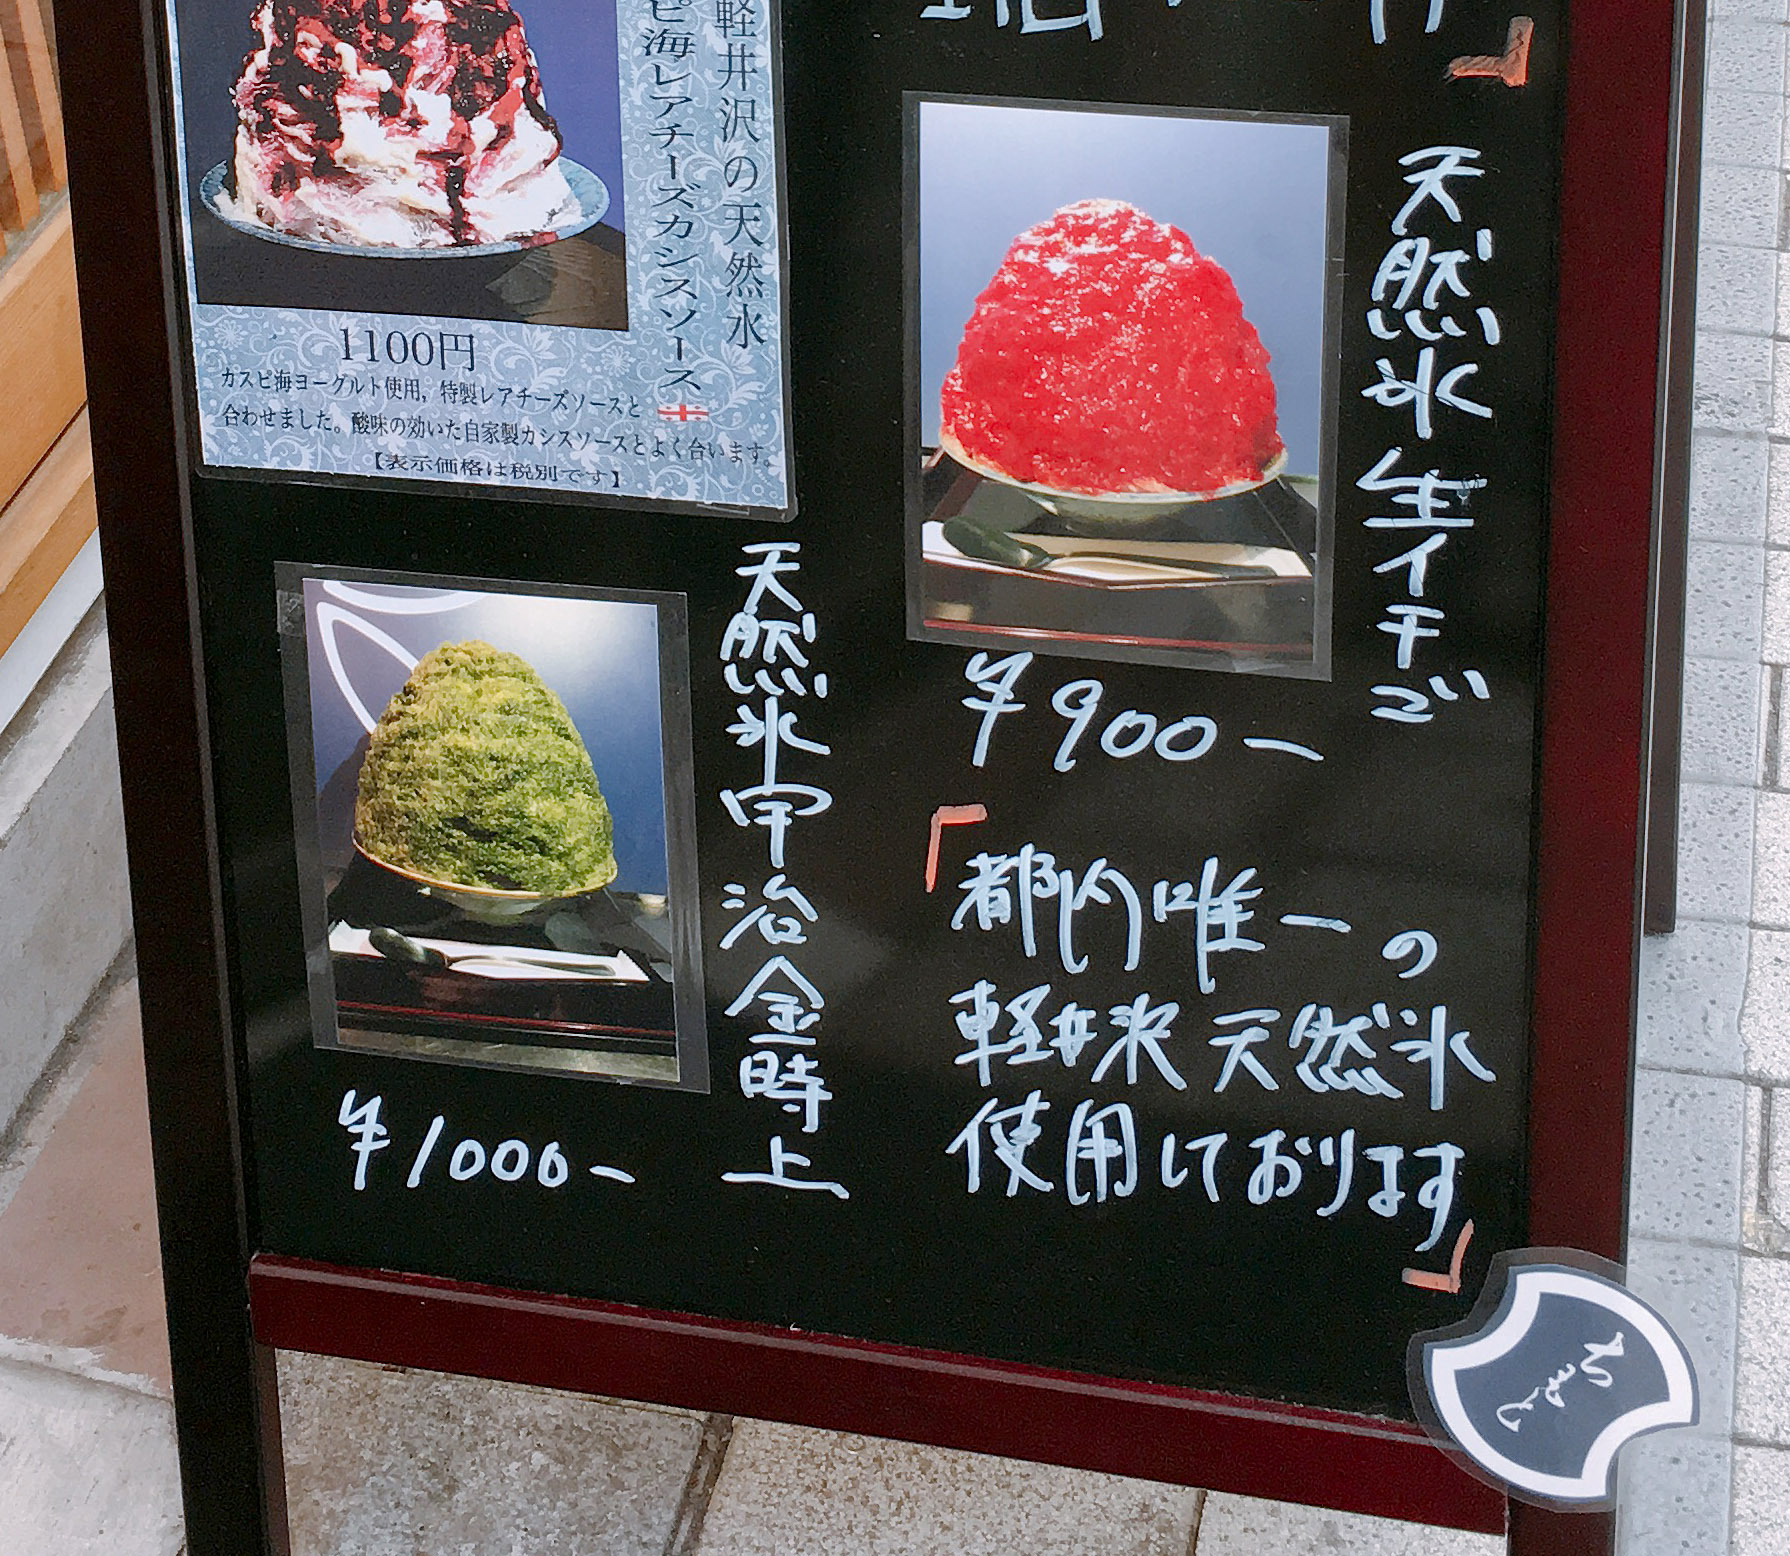 軽井沢の天然氷
ピ海レアチーズカシスソース
1100円
カスピ海ヨーグルト使用，特製レアチーズソースと
合わせました。酸味の効いた自家製カシスソースとよく合います。
【表示価格は税別です】
天然氷生イチゴ
¥900-
天然氷宇治金時上
¥1000-
「都内唯一の
軽井沢天然氷
使用しております」